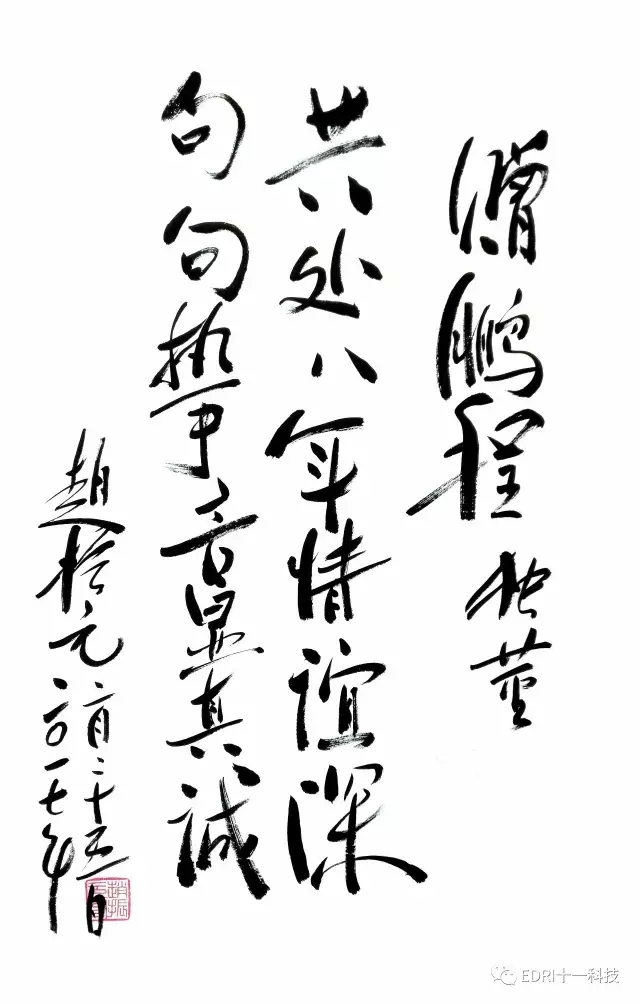 赠鹏程独董
共处八年情谊深
句句挚言显真诚
赵振元
二〇一七年
二月二十五日
EDRI十一科技